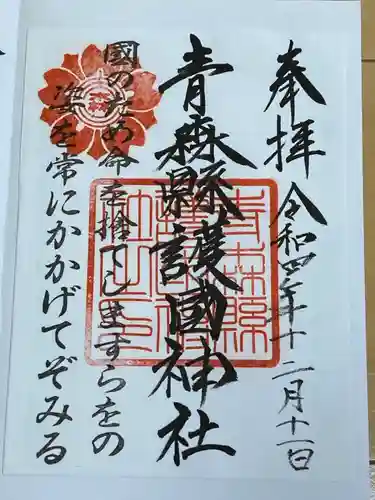 奉拝 令和四年十二月十一日
青森縣護國神社
國のため命を捨てしますらをの
姿を常にかかげてぞみる
青森縣
護國神
社之印
青森